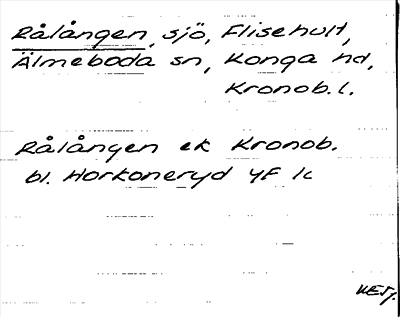 Rålången, sjö, Flisehult,
Älmeboda sn, Konga hd,
Kronob. l.
Rålången ek Kronob.
bl. Horkoneryd 4F 1c